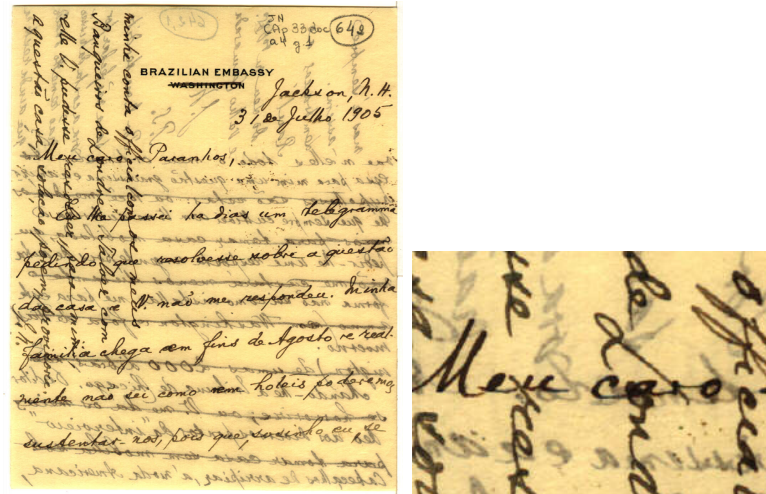 JN
CAp 33 doc 642
a4 g1
BRAZILIAN EMBASSY
WASHINGTON
Jackson, N. H.
31 de Julho 1905
Meu caro Paranhos,
Eu lhe passei ha dias um telegramma
pedindo que resolvesse sobre a questão
da casa e V. não me respondeu. Minha
familia chega em fins de Agosto e real-
mente não sei como nem hoteis poderemos
sustentar-nos, pois que, sosinho eu, se
de arripiar, á moda Americana,
minha conta official com os meus
Banqueiros de Londres. Talvez com
elle V. pudesse resolver para mim
a questão casa, solução provisoria
Meu caro